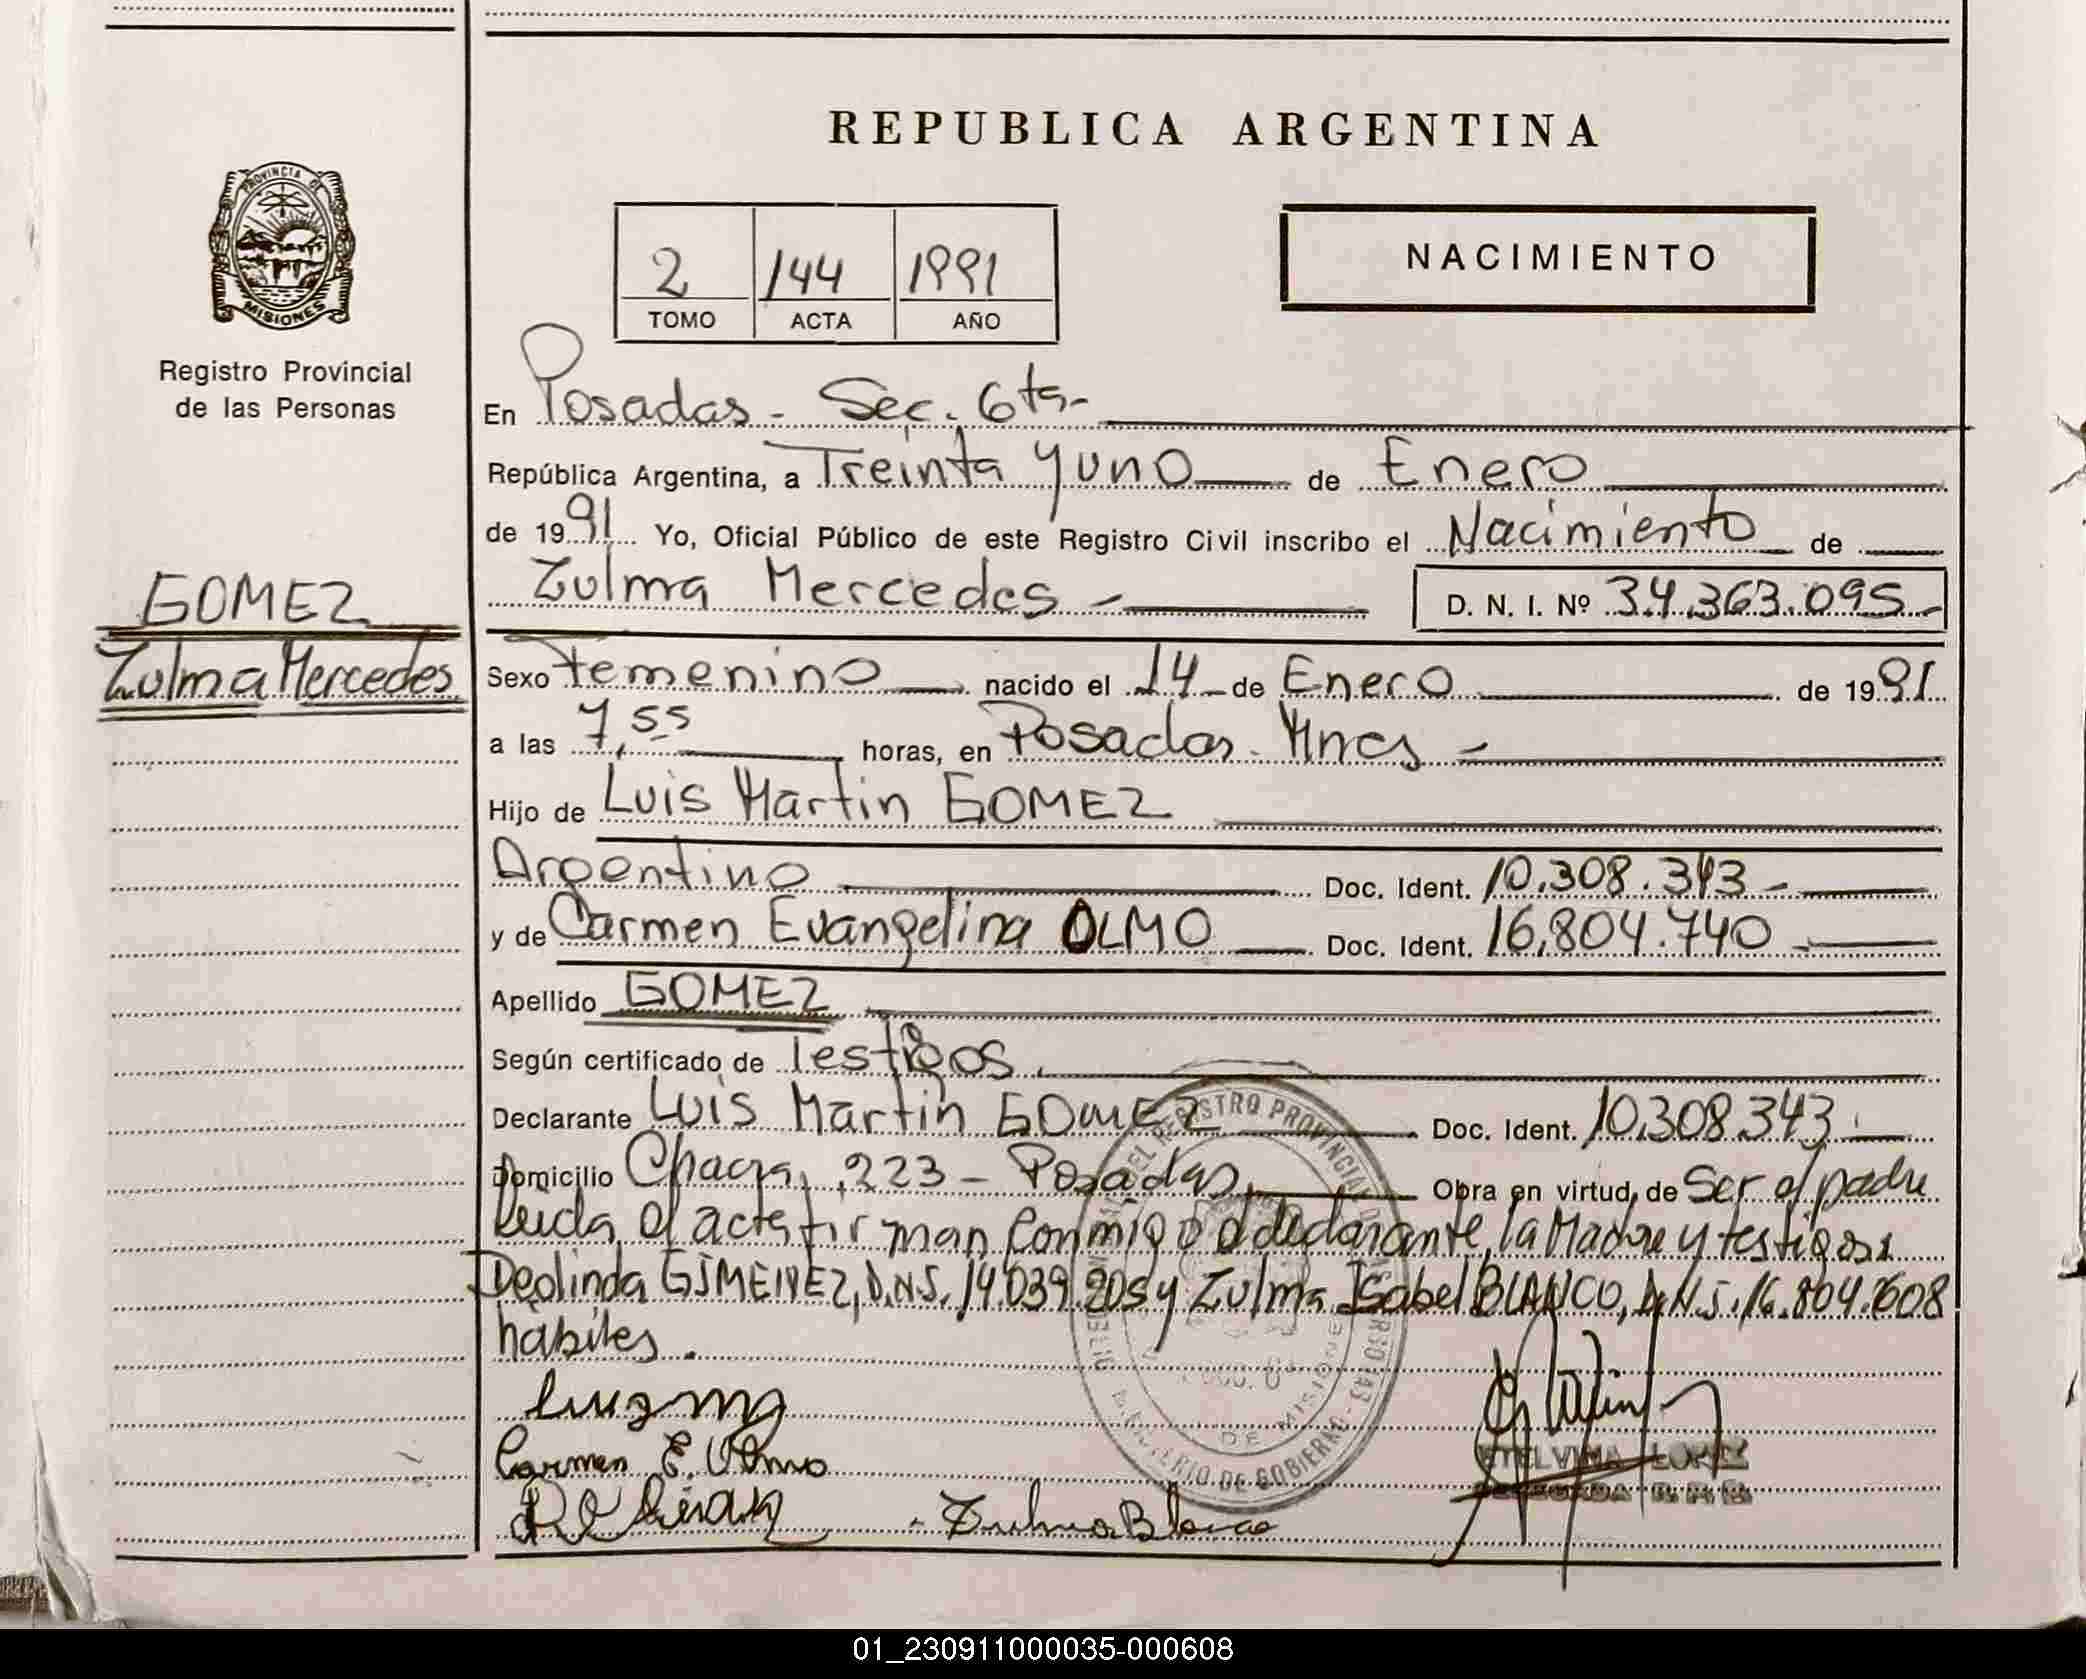 REPUBLICA ARGENTINA
PROVINCIA DE
MISIONES
Registro Provincial
de las Personas
2 144 1991
TOMO ACTA AÑO
NACIMIENTO
En Posadas - Sec. 6ta-
República Argentina, a Treinta y uno de Enero
de 1991 Yo, Oficial Público de este Registro Civil inscribo el Nacimiento de
Zulma Mercedes - D. N. I. Nº 34.363.095-
GOMEZ
Zulma Mercedes
Sexo Femenino nacido el 14 de Enero de 1991
a las 7,55 horas, en Posadas - Mnes -
Hijo de Luis Martin GOMEZ
Argentino Doc. Ident. 10.308.343-
y de Carmen Evangelina OLMO Doc. Ident. 16.804.740-
Apellido GOMEZ
Según certificado de Testigos.
Declarante Luis Martin GOMEZ Doc. Ident. 10.308.343-
Domicilio Chacra, 223 - Posadas Obra en virtud de Ser el padre
Leida el acta firman conmigo el declarante, la Madre y testigos:
Deolinda GIMENEZ, D.N.I. 14.039.205 y Zulma Isabel BLANCO, D.N.I. 16.804.608
habiles.
Carmen E. Olmo
Zulma Blanco
ETELVINA LOPEZ
REGISTRO PROVINCIAL DE LAS
DE MISIONES
DE GOBIERNO
01_230911000035-000608